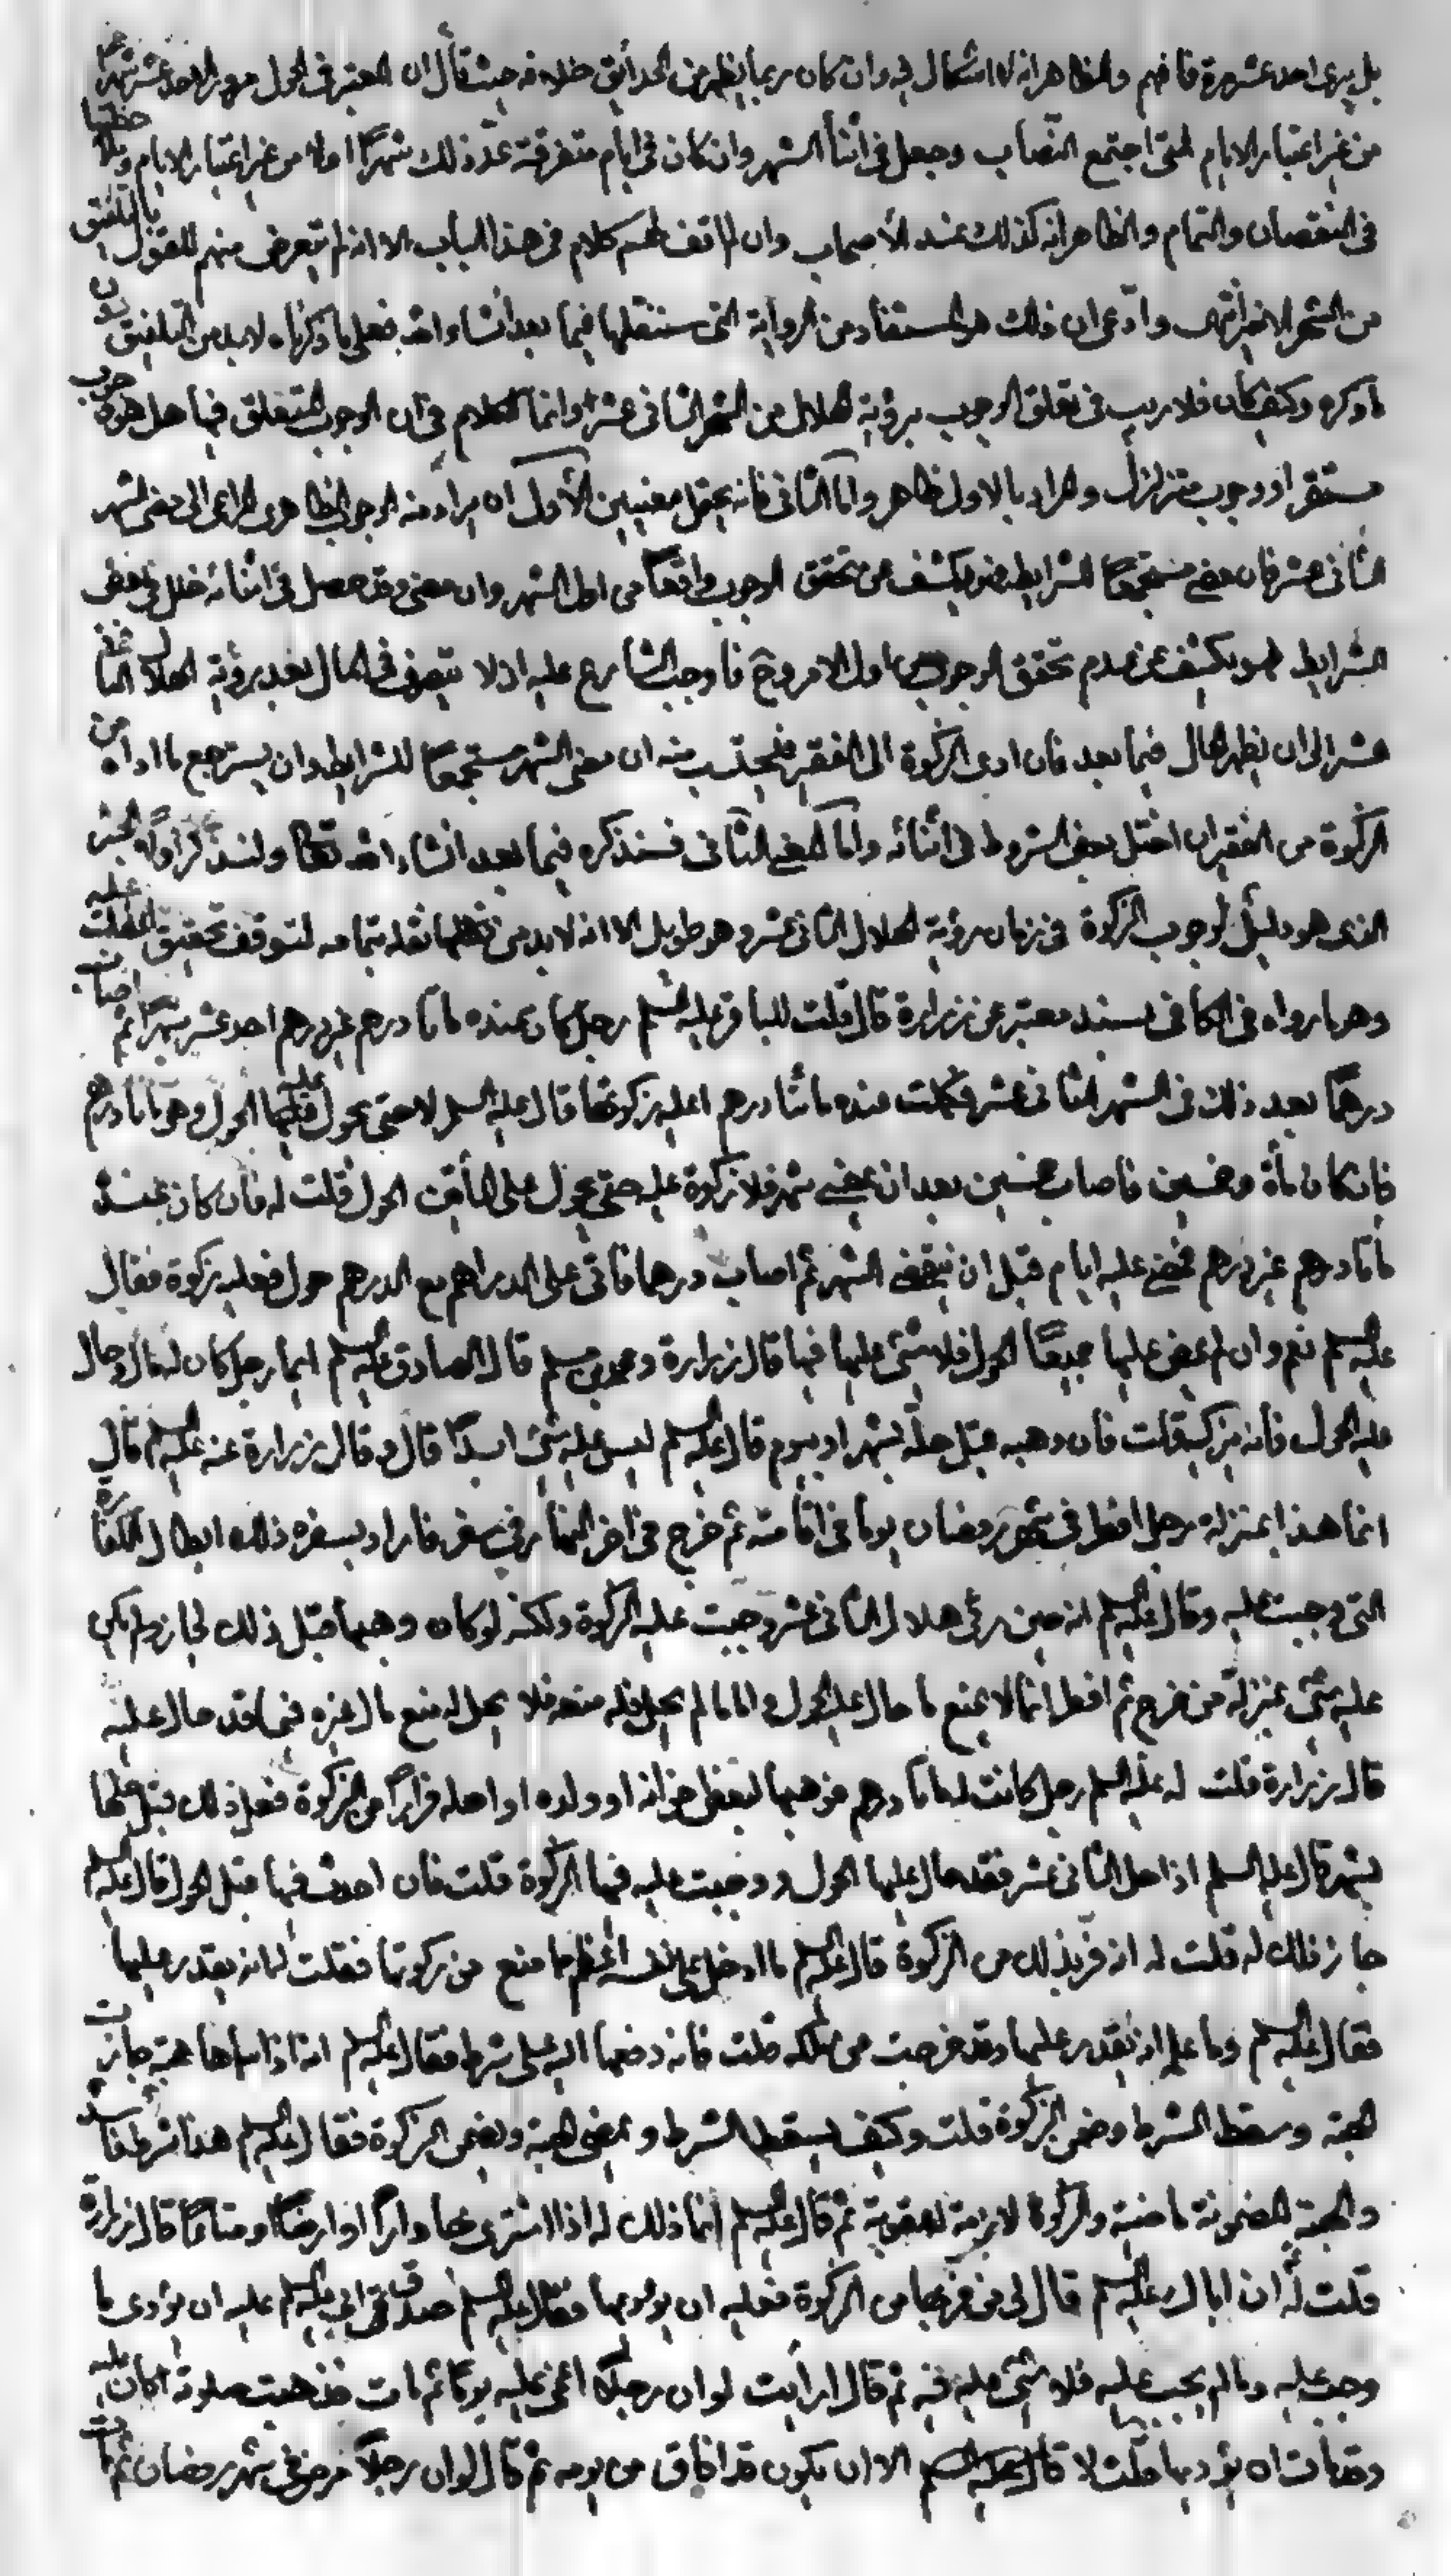 بل يرى احد عشر مرة فافهم والظاهر انه لا اشكال فيه وان كان ربما يظهر من الحدايق خلافه حيث قال ان المعتبر في الحول مرور الاحد عشر شهر
من غير اعتبار الايام فمتى اجتمع النصاب وجعل في اثناء الشهر وان كان في ايام متفرقة عدّ ذلك شهرًا اولا من غير اعتبار الايام
في النقصان والتمام والظاهر انه كذلك عند الأصحاب وان لم اقف لهم على كلام في هذا الباب الا انه لم يتعرض منهم للقول بالتلفيق
من الشهر الاخير انتهى وادّعى ان ذلك هو المستفاد من الرواية التي سننقلها فيما بعد انشاء الله فعلى ما ذكرناه لا بد من التلفيق دون
ما ذكره وكيف كان فلا ريب في تعلق الوجوب برؤية الهلال من الشهر الثاني عشر وانما الكلام في ان الوجوب المتعلق فيها هل هو وجوب
مستقر او وجوب متزلزل والمراد بالاول ظاهر وامّا الثاني فانه يحتمل معنيين الأول ان يراد منه الوجوب الظاهرى المراعى الى مضى الشهر
الثاني عشر فان مضى مستجمعًا للشرايط فهو يكشف عن تحقق الوجوب واقعًا من اول الشهر وان مضى وقد حصل في اثنائه خلل في بعض
الشرايط فهو يكشف عن عدم تحقق الوجوب من اول الامر وح فاوجب الشارع عليه ان لا يتصرف في المال بعد رؤية الهلال الثاني
عشر الى ان يظهر الحال فيما بعد فان ادى الزكوة الى الفقير فيحتسب منه ان مضى الشهر مستجمعًا للشرايط وان يسترجع ما اداه من
الزكوة من الفقير ان اختل بعض الشروط في اثنائه وامّا المعنى الثاني فسنذكره فيما بعد انشاء الله تعالى ولنذكر اولًا الخبر
الذى هو دليل لوجوب الزكوة في زمان رؤية الهلال الثاني عشر وهو طويل الا انه لا بد من نقله بتمامه لتوقف تحقيق المقام عليه
وهو ما رواه في الكافي بسند معتبر عن زرارة قال قلت للباقر عليه السلم رجل كان عنده مأتا درهم غير درهم احد عشر شهرًا ثم اصاب
درهمًا بعد ذلك في الشهر الثاني عشر فكملت عنده مائتا درهم اعليه زكوتها قال عليه السلم لا حتى يحول عليها الحول وهي مأتا درهم
فان كان مأة وخمسين فاصاب خمسين بعد ان يمضى شهر فلا زكوة عليه حتى يحول على المأتين الحول قلت له فان كان عنده
مأتا درهم غير درهم فمضى عليه ايام قبل ان ينقضى الشهر ثم اصاب درهما فاتى على الدراهم مع الدرهم حول فعليه زكوة فقال
عليه السلم نعم وان لم يمض عليها جميعًا الحول فلا شئ عليها فيها قال زرارة ومحمد بن مسلم قال الصادق عليه السلم ايما رجل كان له مال وحال
عليه الحول فانه يزكيه قلت فان وهبه قبل حله بشهر او بيوم قال عليه السلم ليس عليه شئ ابدًا قال وقال زرارة عنه عليه السلم قال
انما هذا بمنزلة رجل افطر في شهر رمضان يومًا في اقامته ثم خرج في اخر النهار في سفر فاراد بسفره ذلك ابطال الكفارة
التي وجبت عليه وقال عليه السلم انه حين رئى هلال الثاني عشر وجبت عليه الزكوة ولكنه لو كان وهبها قبل ذلك لجاز ولم يكن
عليه شئ بمنزلة من خرج ثم افطر انما لا يمنع ما حال عليه الحول واما ما لم يحل فله منعه فلا يحل له منع مال غيره فيما قد حال عليه
قال زرارة قلت له عليه السلم رجل كانت له مأتا درهم فوهبها لبعض اخوانه او ولده او اهله فرارًا من الزكوة فعل ذلك قبل حلها
بشهر قال عليه السلم اذا دخل الثاني عشر فقد حال عليها الحول ووجبت عليه فيها الزكوة قلت فان احدث فيها قبل الحول قال عليه السلم
جاز ذلك له قلت له انه فرّ بذلك من الزكوة قال عليه السلم ما ادخل على نفسه اعظم مما منع من زكوتها فقلت له انه يقدر عليها
فقال عليه السلم وما علمه انه يقدر عليها وقد خرجت من ملكه قلت فانه دفعها اليه على شرط فقال عليه السلم انه اذا سماها هبة جازت
الهبة وسقط الشرط وضمن الزكوة قلت وكيف يسقط الشرط ويمضى الهبة ويضمن الزكوة فقال عليه السلم هذا شرط فاسد
والهبة المضمونة ماضية والزكوة لازمة له عقوبة ثم قال عليه السلم انما ذلك له اذا اشترى بها دارًا او ارضًا او متاعًا قال زرارة
قلت له ان اباك عليه السلم قال لى من فرّ بها من الزكوة فعليه ان يؤديها فقال عليه السلم صدق ابي عليه السلم عليه ان يؤدى ما
وجب عليه وما لم يجب عليه فلا شئ عليه فيه ثم قال ارأيت لو ان رجلًا اغمى عليه يومًا ثم مات فذهبت صلوته اكان عليه
وقد مات ان يؤديها قلت لا قال عليه السلم الا ان يكون قد افاق من يومه ثم قال لو ان رجلًا مرض في شهر رمضان ثم مات